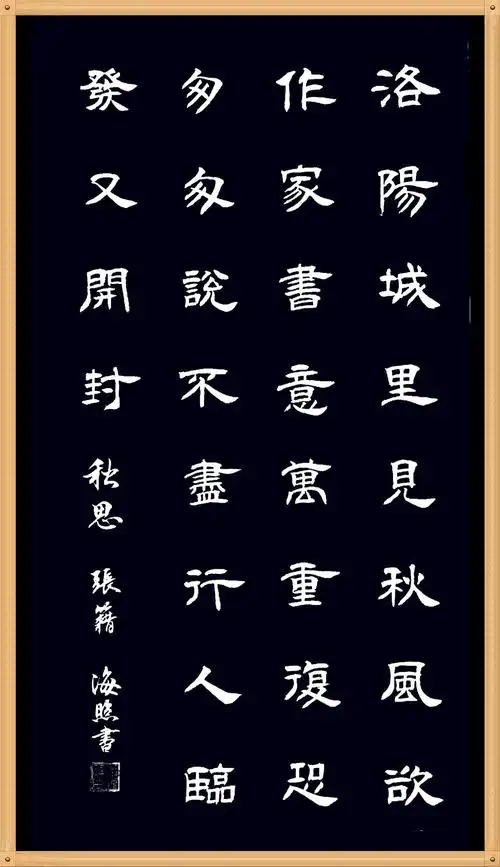 洛陽城里見秋風欲
作家書意萬重復恐
匆匆說不盡行人臨
發又開封
秋思 張籍 海照書